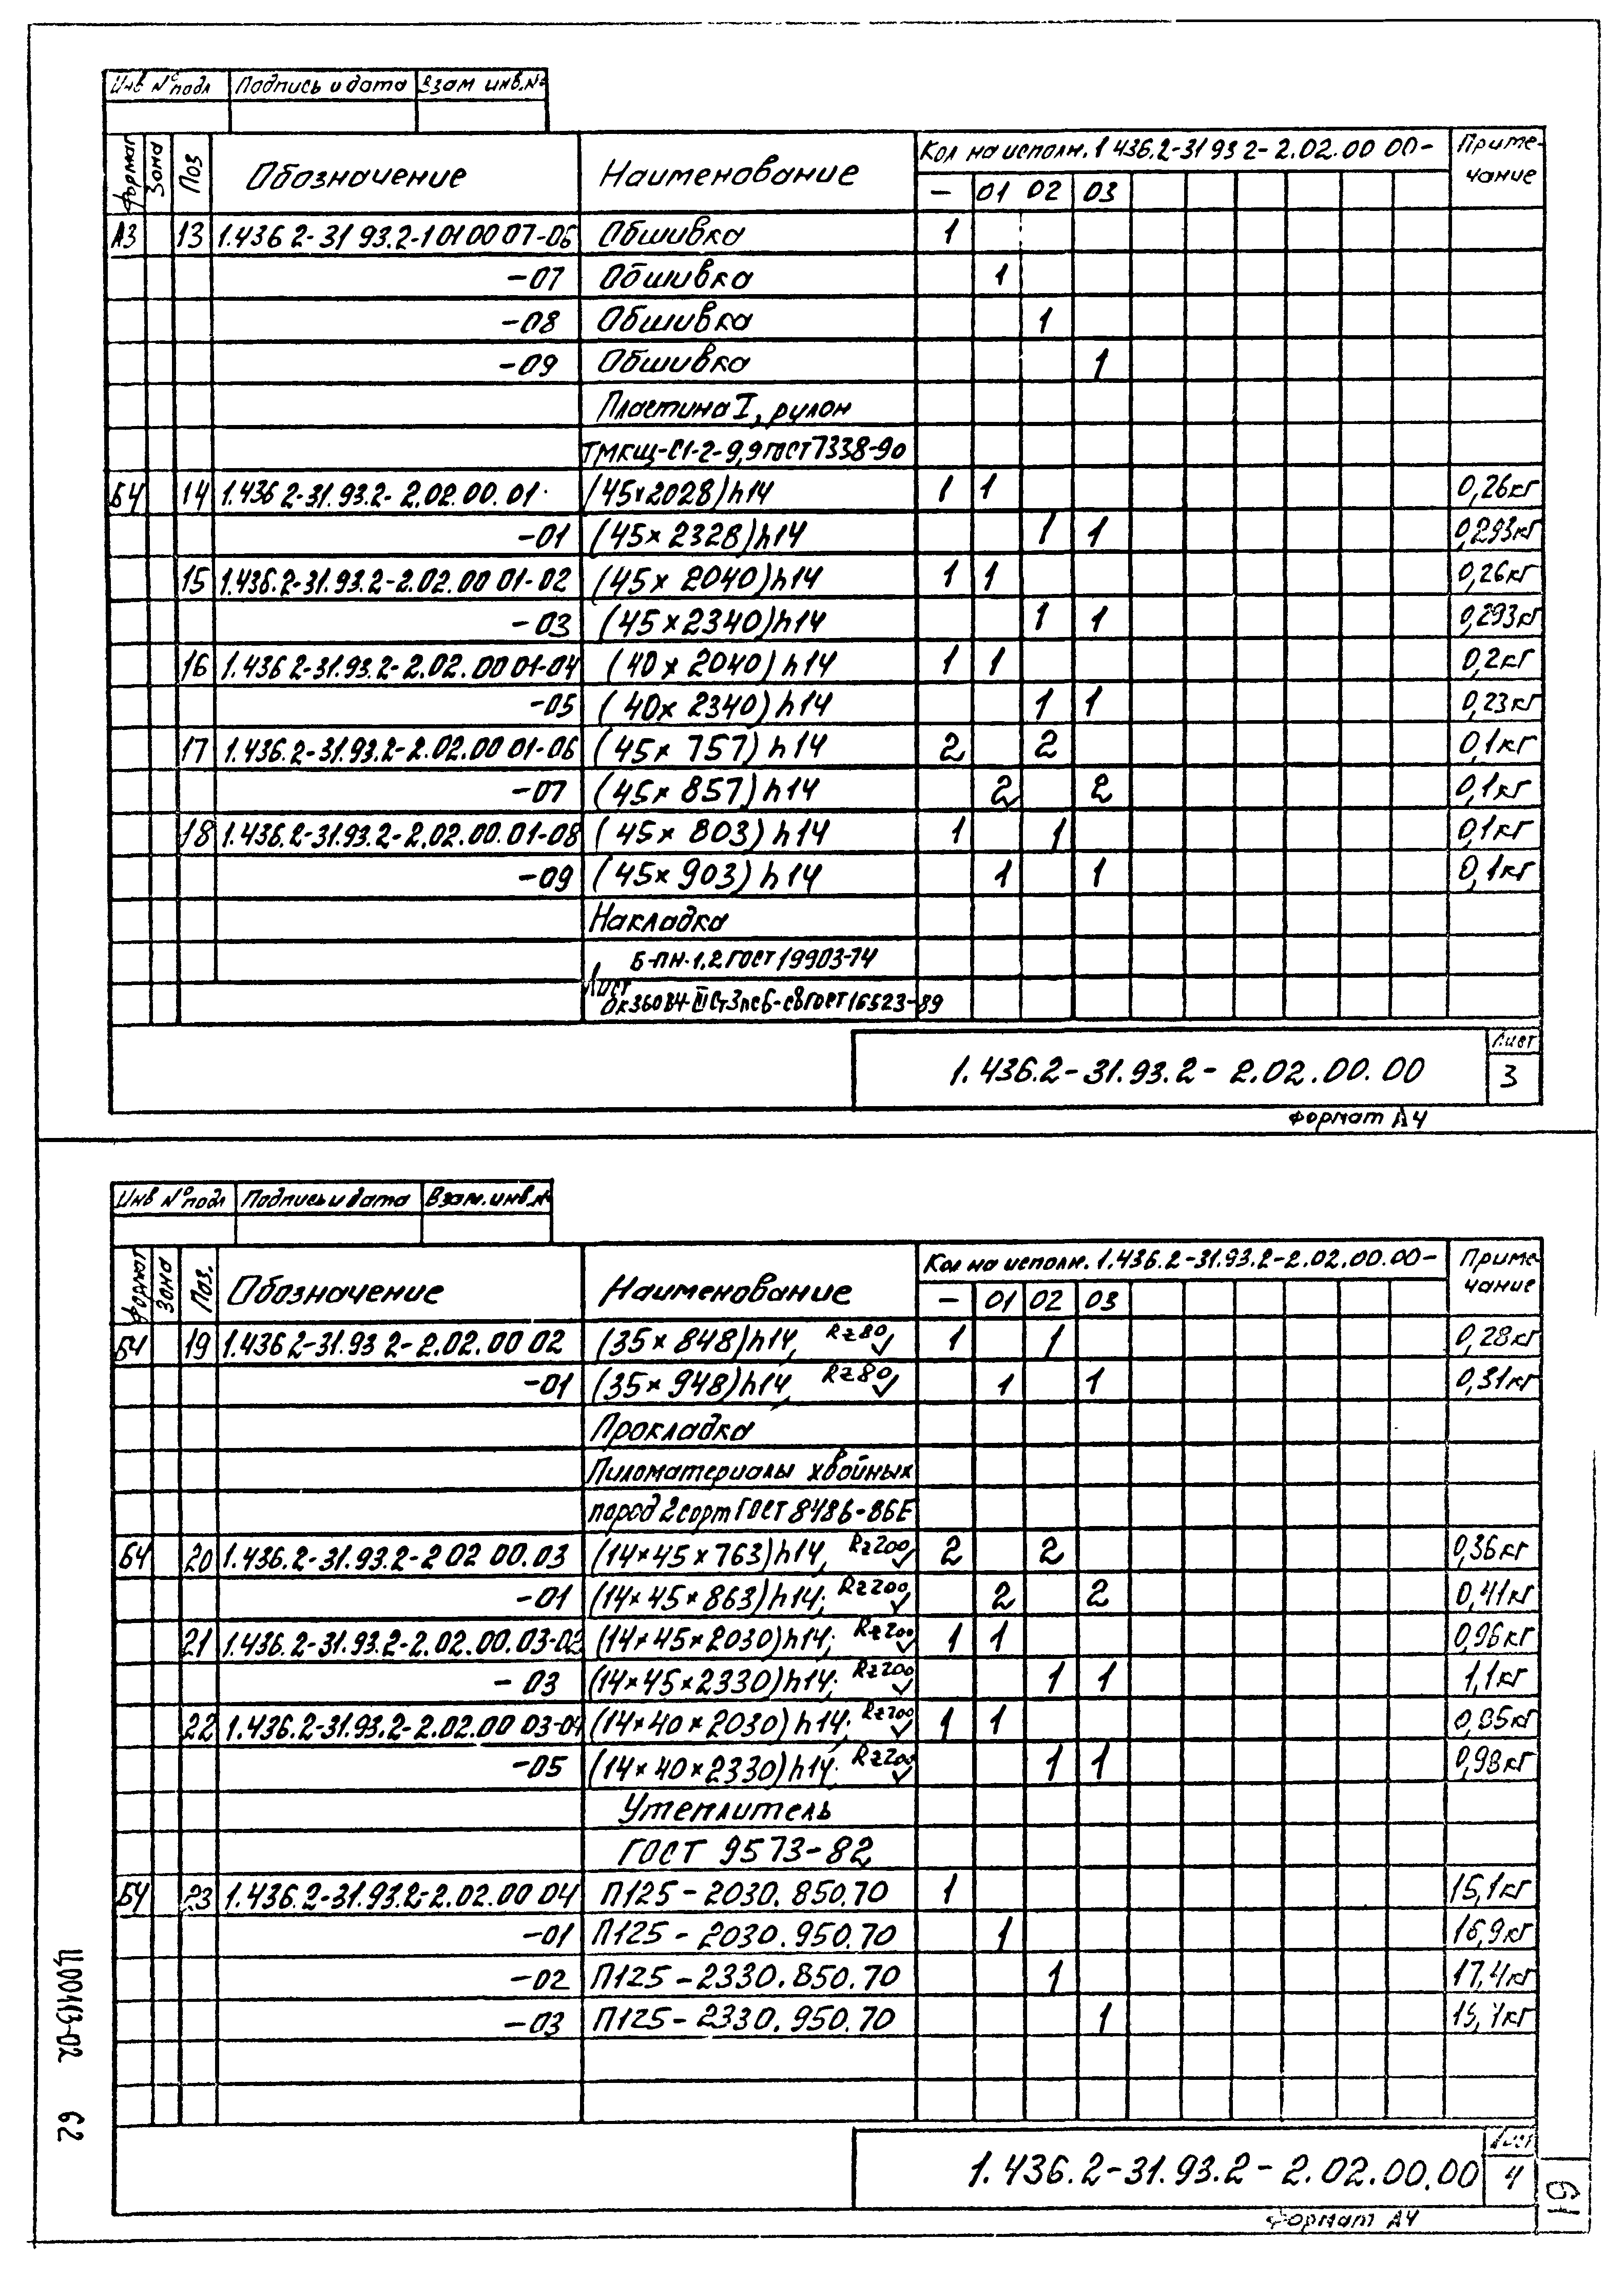 Инв № подл Подпись и дата Взам инв. №
Формат Зона Поз Обозначение Наименование Кол на исполн. 1 436.2-31 93 2-2.02.00 00- Приме-
чание
— 01 02 03
А3 13 1.436 2-31 93.2-1 01 00 07-06 Обшивка 1
-07 Обшивка 1
-08 Обшивка 1
-09 Обшивка 1
Пластина I, рулон
ТМКЩ-С1-2-9,9 ГОСТ 7338-90
БЧ 14 1.436 2-31.93.2-2.02.00.01 (45×2028)h14 1 1 0,26кг
-01 (45×2328)h14 1 1 0,293кг
15 1.436.2-31.93.2-2.02.00 01-02 (45×2040)h14 1 1 0,26кг
-03 (45×2340)h14 1 1 0,293кг
16 1.436 2-31.93.2-2.02.00 01-04 (40×2040)h14 1 1 0,2кг
-05 (40×2340)h14 1 1 0,23кг
17 1.436.2-31.93.2-2.02.00 01-06 (45×757)h14 2 2 0,1кг
-07 (45×857)h14 2 2 0,1кг
18 1.436.2-31.93.2-2.02.00.01-08 (45×803)h14 1 1 0,1кг
-09 (45×903)h14 1 1 0,1кг
Накладка
Б-ПН-1,2 ГОСТ 19903-74
Лист
ОК360В4-III Ст3пс5-св ГОСТ 16523-89
1.436.2-31.93.2-2.02.00.00 Лист
3
Формат А4
Инв № подл Подпись и дата Взам. инв. №
Формат Зона Поз. Обозначение Наименование Кол на исполн. 1.436.2-31.93.2-2.02.00.00- Приме-
чание
— 01 02 03
БЧ 19 1.436 2-31.93 2-2.02.00 02 (35×848)h14, Rz80 1 1 0,28кг
-01 (35×948)h14, Rz80 1 1 0,31кг
Прокладка
Пиломатериалы хвойных
пород 2 сорт ГОСТ 8486-86Е
БЧ 20 1.436.2-31.93.2-2 02 00.03 (14×45×763)h14, Rz200 2 2 0,36кг
-01 (14×45×863)h14; Rz200 2 2 0,41кг
21 1.436.2-31.93.2-2.02.00.03-02 (14×45×2030)h14; Rz200 1 1 0,96кг
-03 (14×45×2330)h14; Rz200 1 1 1,1кг
22 1.436.2-31.93.2-2.02.00 03-04 (14×40×2030)h14; Rz200 1 1 0,85кг
-05 (14×40×2330)h14; Rz200 1 1 0,98кг
Утеплитель
ГОСТ 9573-82
БЧ 23 1.436.2-31.93.2-2.02.00 04 П125-2030.850.70 1 15,1кг
-01 П125-2030.950.70 1 16,9кг
-02 П125-2330.850.70 1 17,4кг
-03 П125-2330.950.70 1
1.436.2-31.93.2-2.02.00.00 Лист
4
Формат А4
Ц00413-02 62
61